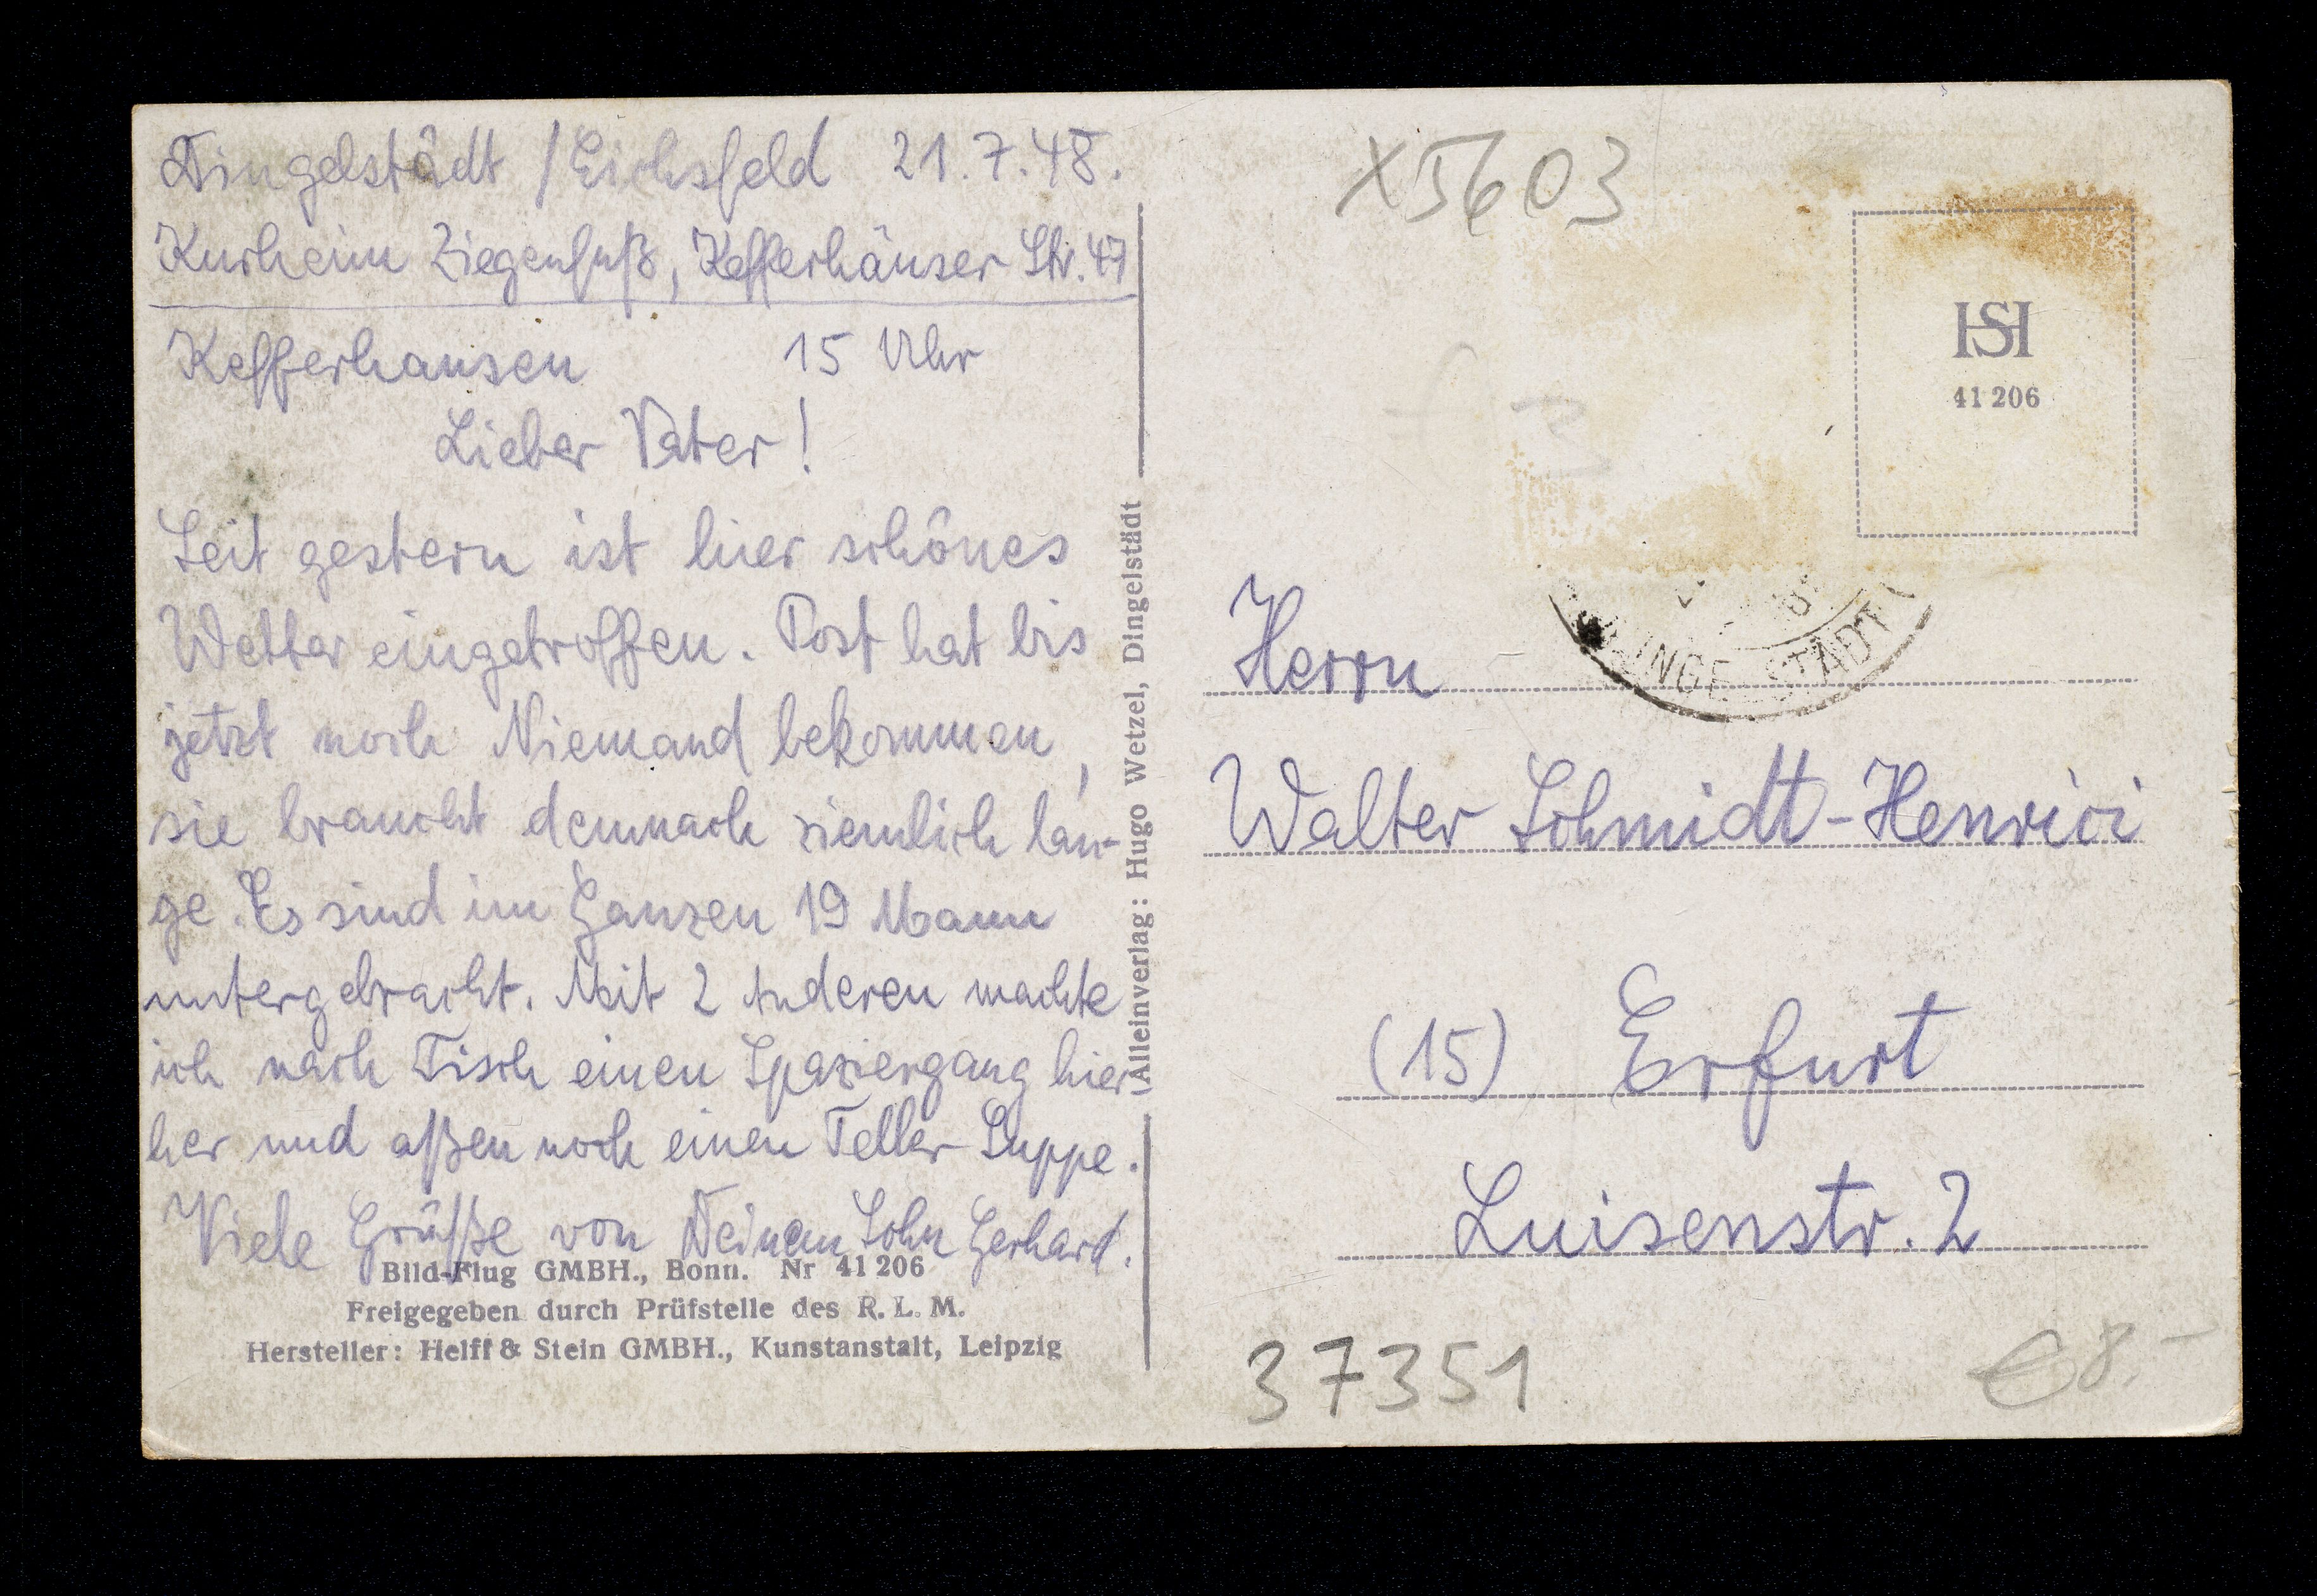 Dingelstädt / Eichsfeld 21.7.48.
Kurheim Ziegenfuß, Kefferhäuser Str. 47
Kefferhausen 15 Uhr
Lieber Vater!
Seit gestern ist hier schönes
Wetter eingetroffen. Post hat bis
jetzt noch Niemand bekommen,
sie braucht demnach ziemlich lan-
ge. Es sind im Ganzen 19 Mann
untergebracht. Mit 2 Anderen machte
ich nach Tisch einen Spaziergang hier
her und aßen noch einen Teller Suppe.
Viele Grüße von Deinem Sohn Gerhard.
Bild-Flug GMBH., Bonn. Nr 41 206
Freigegeben durch Prüfstelle des R. L. M.
Hersteller: Helff & Stein GMBH., Kunstanstalt, Leipzig
(Alleinverlag: Hugo Wetzel, Dingelstädt
X5603
HSH
41 206
Herrn
Walter Schmidt-Henrici
(15) Erfurt
Luisenstr. 2
37351
€ 8,-